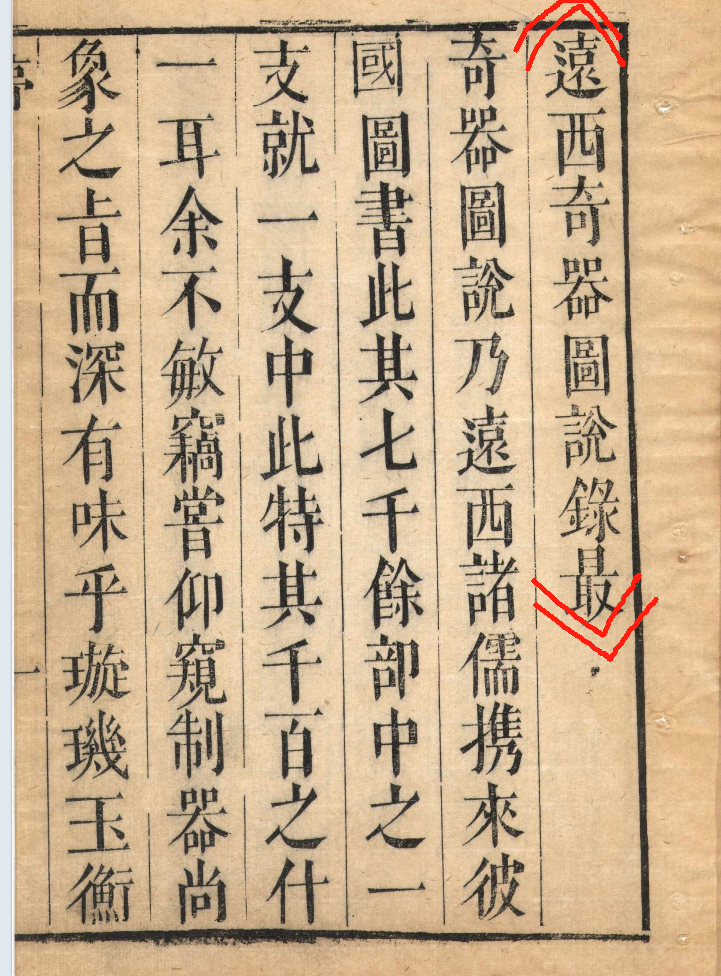 遠西奇器圖說錄最
奇器圖說乃遠西諸儒携來彼
國圖書此其七千餘部中之一
支就一支中此特其千百之什
一耳余不敏竊嘗仰窺制器尚
象之旨而深有味乎璇璣玉衡
一